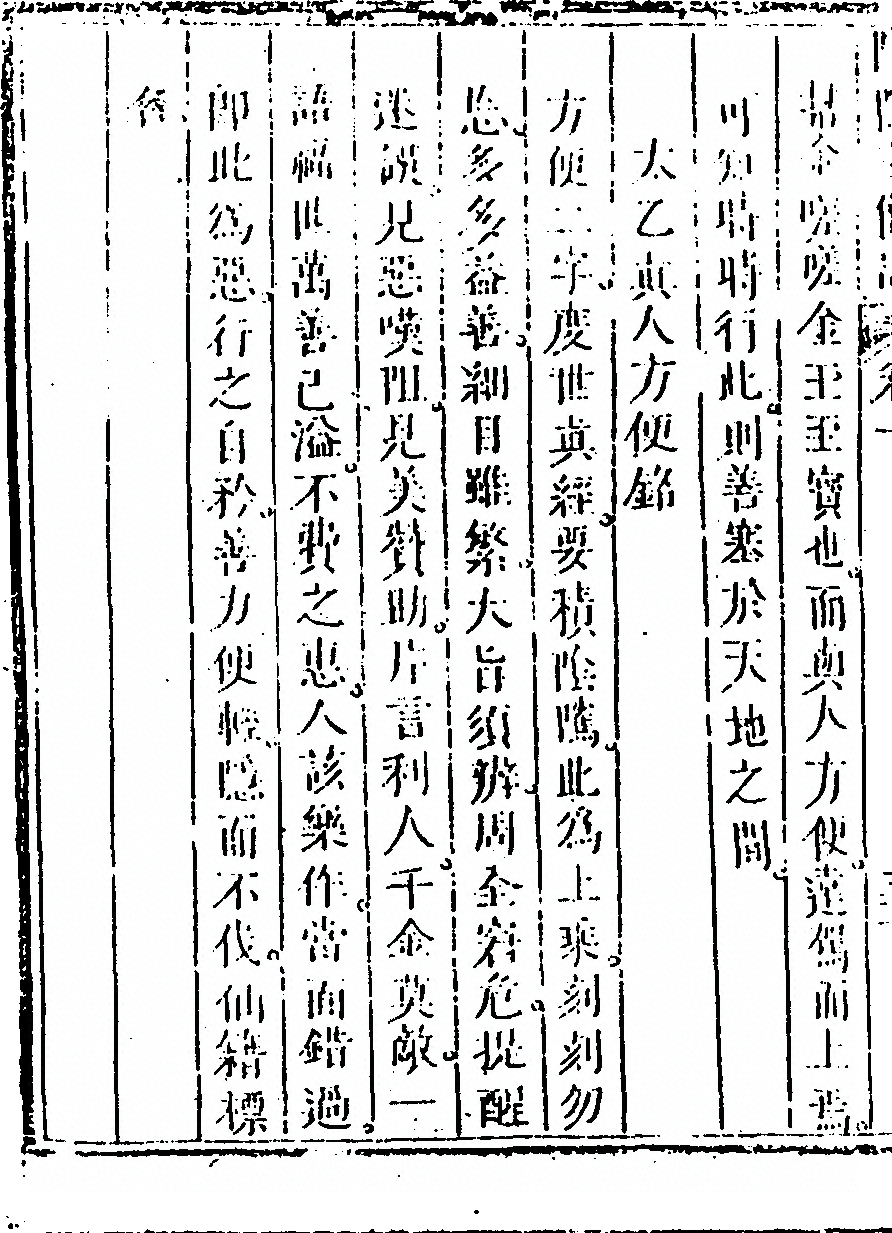 金嗟嗟金玉玉實也而真人方便達為而上焉
可知時時行此則善塞於天地之間
太乙真人方便銘
方便二字度世真經要積陰隲此為上乘刻刻勿
忘多多益善細目雖繁大旨須辨周全窘危提醒
迷誤見惡嘆阻見美贊助片言利人千金莫敵一
語福世萬善已溢不費之惠人該樂作當面錯過
即此為惡行之自矜善力便輕隱而不伐仙籍標
名